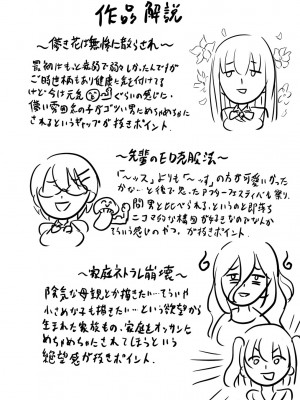 作品解説
〜儚き花は無惨に散らされ〜
最初はもっと病的で弱々しかったんですが
ご時世柄もあり健康に気を付けてる
けど今は元気 ぐらいの感じに。
儚い雰囲気の子がゴツい男にめちゃめちゃに
されるというギャップが抜きポイント。
〜先輩のED克服法〜
「〜ッス」よりも「〜っす」の方が可愛いかった
かな…と後で思ったアフターフェスティバル祭り。
間男と比べられる、というのと即落ち
2コマ的な構図が好きなのでなんか
そういう感じのやつ。が抜きポイント。
〜家庭ネトラレ崩壊〜
陰気な母親とか描きたい…ていうか
小さめな子も描きたい…という欲望から
生まれた家族もの。家庭をオッサンに
めちゃめちゃにされてしまうという
絶望感が抜きポイント。